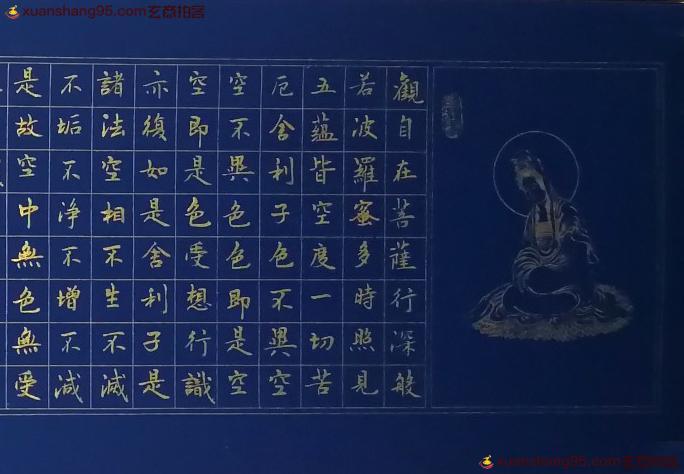 xuanshang95.com玄商拍客
xuanshang95.com玄商拍客
觀自在菩薩行深般
若波羅蜜多時照見
五蘊皆空度一切苦
厄舍利子色不異空
空不異色色即是空
空即是色受想行識
亦復如是舍利子是
諸法空相不生不滅
不垢不淨不增不減
是故空中無色無受
xuanshang95.com玄商拍客